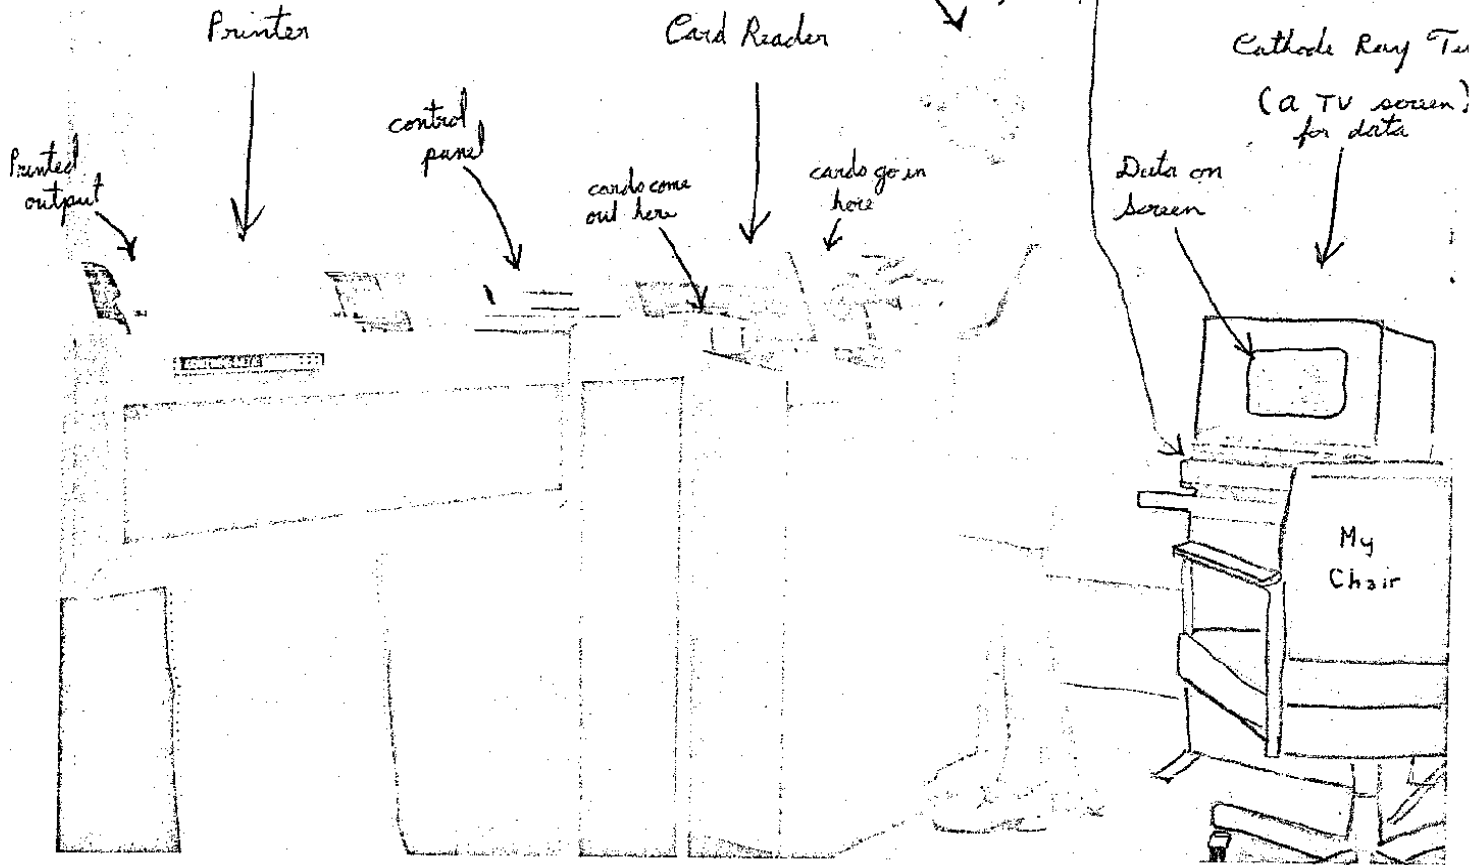 Printer
Card Reader
Cathode Ray Tu
(a TV screen)
for data
control
panel
Printed
output
cards come
out here
cards go in
here
Data on
screen
My
Chair